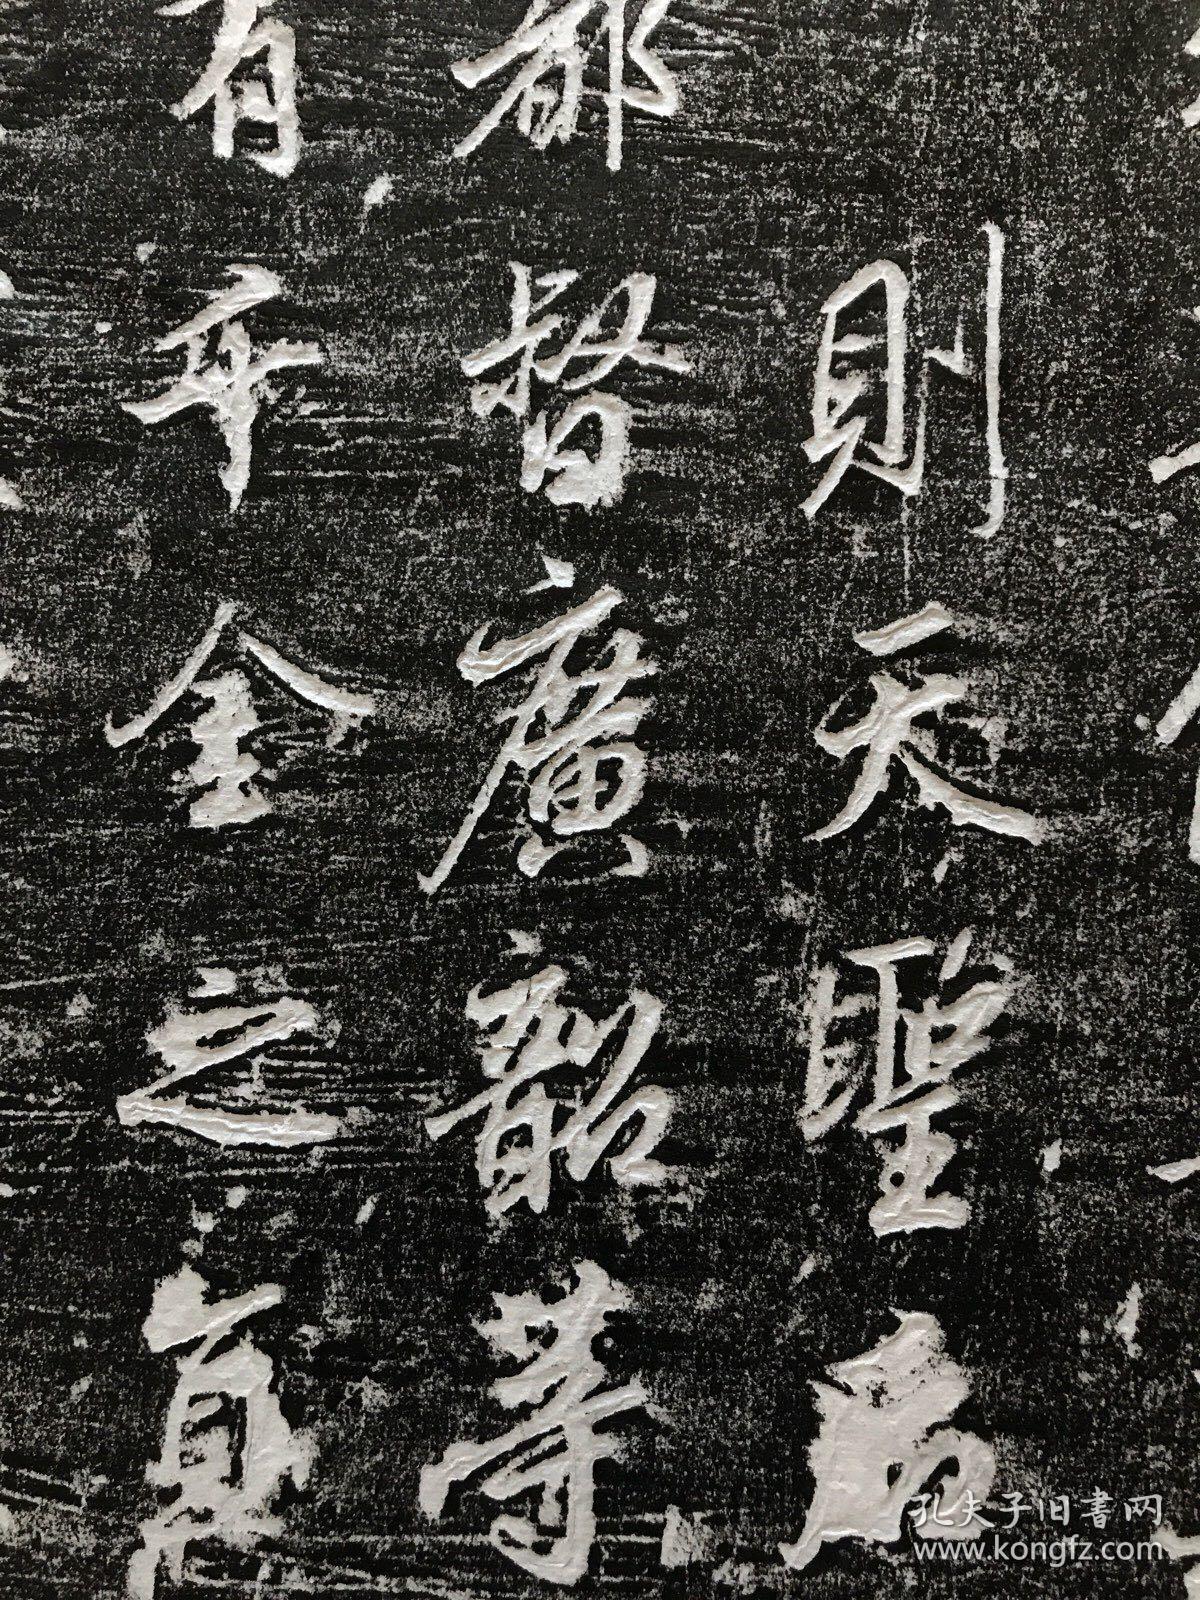 則天聖后
都督廣韶等
金之真
孔夫子旧書网
www.kongfz.com